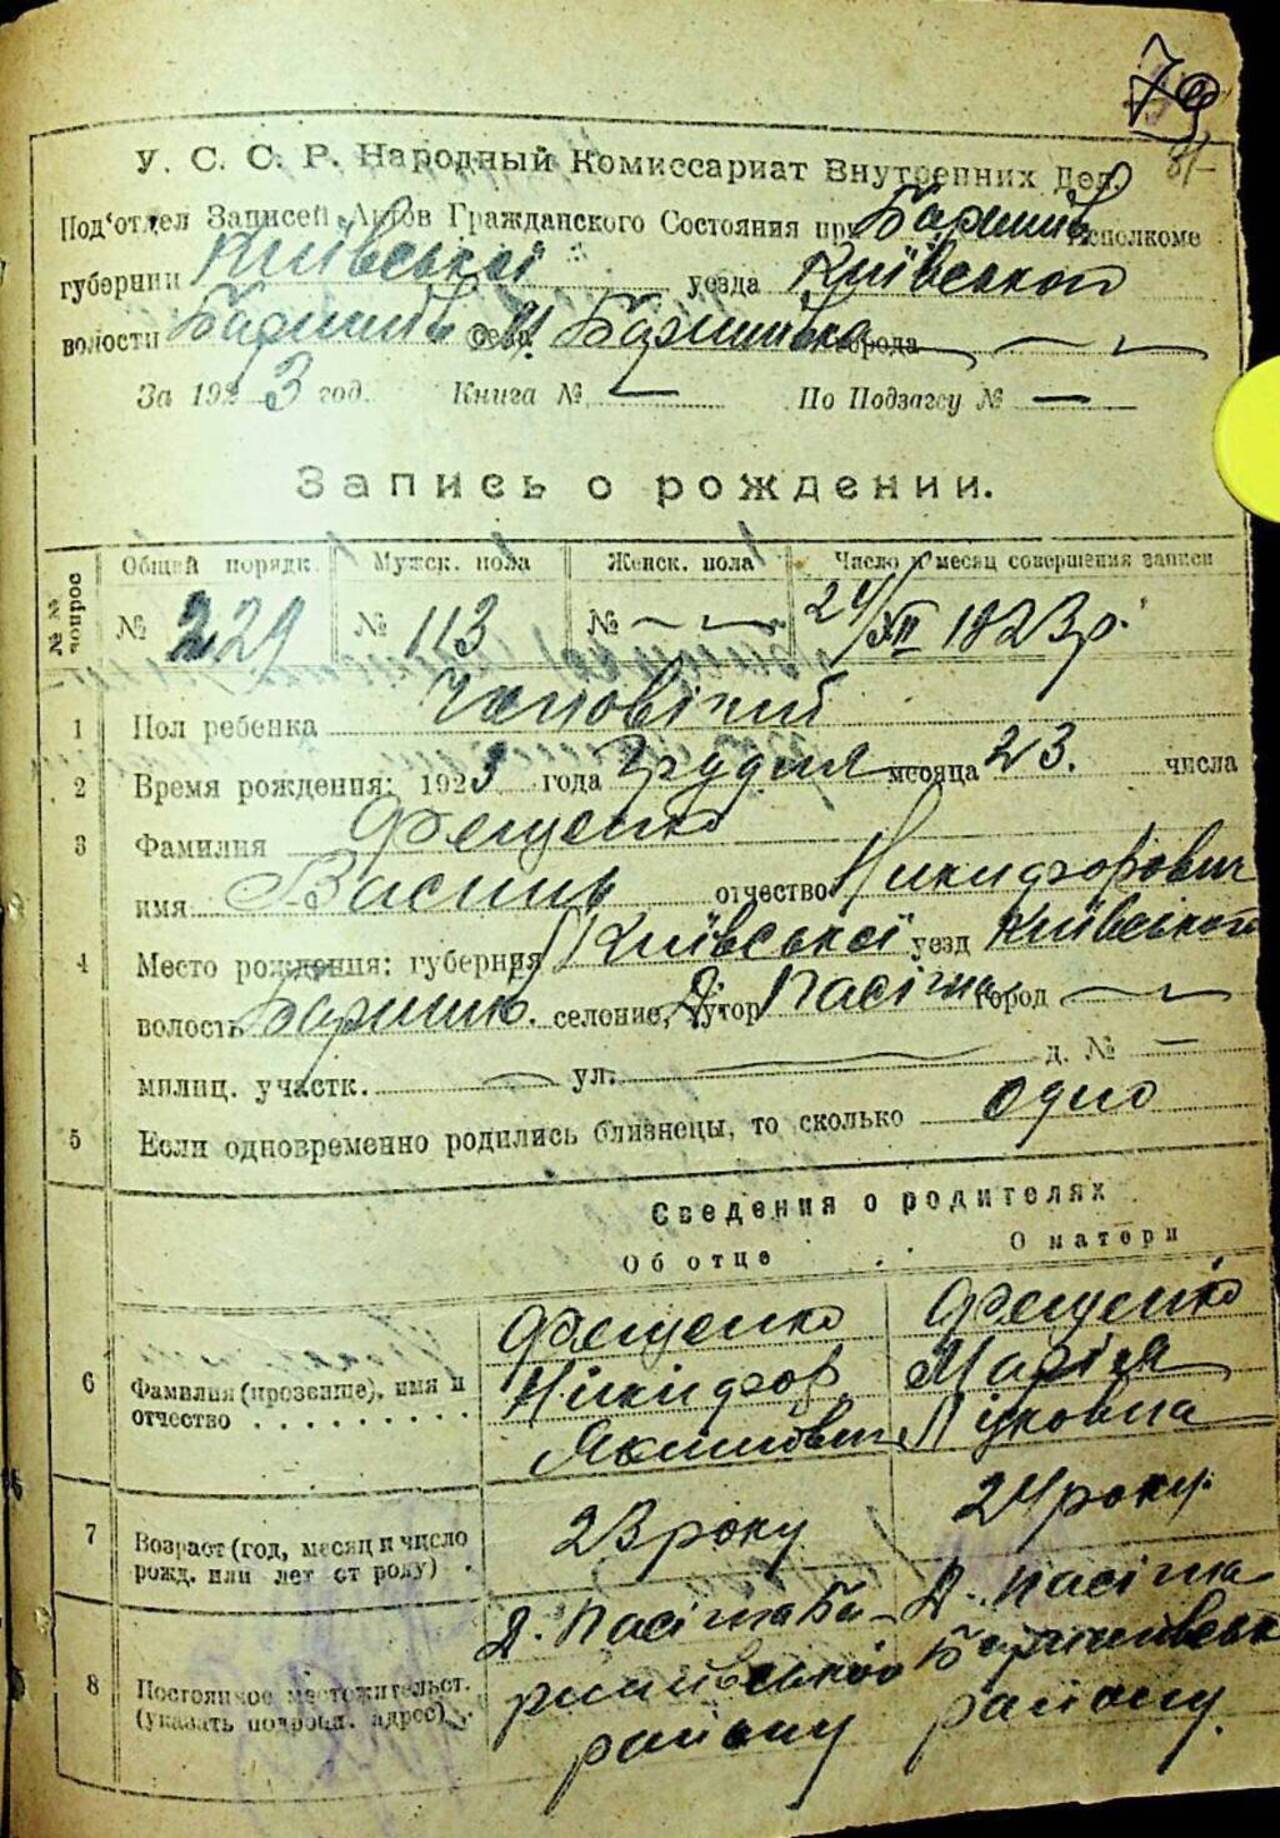 79
У. С. С. Р. Народный Комиссариат Внутренних Дел.
Под'отдел Записей Актов Гражданского Состояния при Баришів Исполкоме
губернии Київської уезда Київского
волости Баришів села М. Баришівка города —
За 1923 год. Книга № — По Подзагсу № —
Запись о рождении.
№№ вопрос Общий порядк. Мужск. пола Женск. пола Число и месяц совершения записи
№ 229 № 113 № — 24/XII 1923 р.
1 Пол ребенка Чоловічий
2 Время рождения: 1923 года Грудня месяца 23. числа
3 Фамилия Фещенко
имя Василь отчество Никифорович
4 Место рождения: губерния Київської уезд Київського
волость Баришів. селение, хутор Д. Пасічна город —
милиц. участк. — ул. — д. № —
5 Если одновременно родились близнецы, то сколько одно
Сведения о родителях
Об отце О матери
6 Фамилия (прозвище), имя и отчество . . . . . . . . .
Фещенко Фещенко
Никифор Марія
Якимович Луковна
7 Возраст (год, месяц и число рожд. или лет от роду) .
23 року 24 року.
8 Постоянное местожительст. (указать подробн. адрес) .
Д. Пасічна Ба- Д. Пасічна
ришівського Баришівськ
району району.